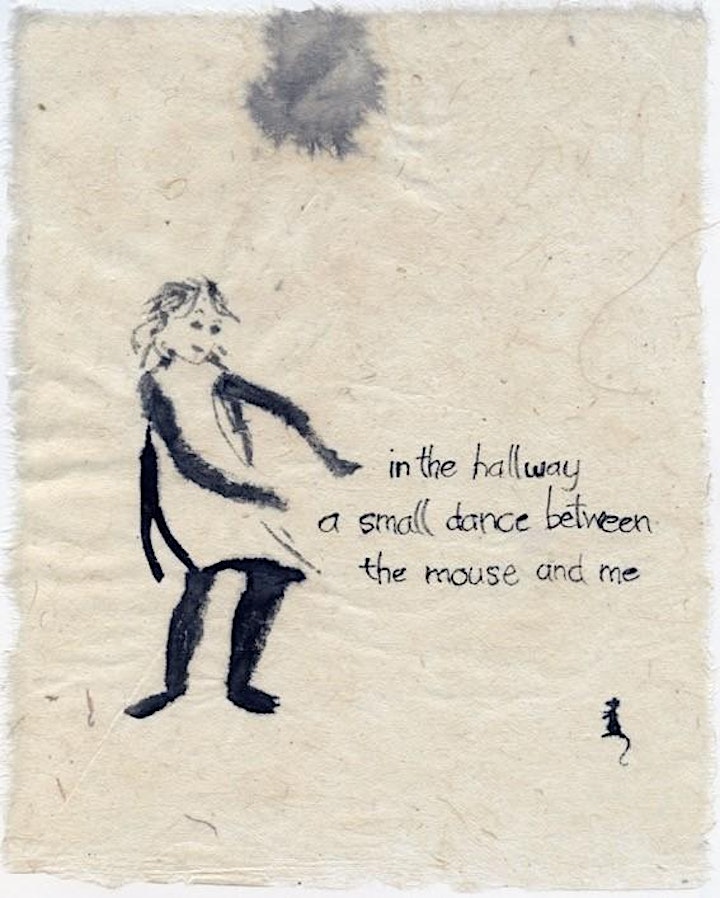 in the hallway
a small dance between
the mouse and me